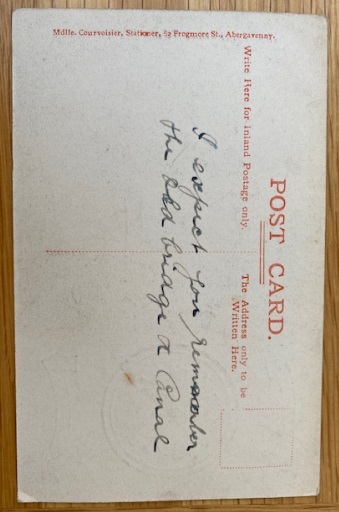 POST CARD.
Write Here for Inland Postage only.
The Address only to be
Written Here.
I expect you remember
the old bridge & Canal
Mdlle. Courvoisier, Stationer, 52 Frogmore St., Abergavenny.